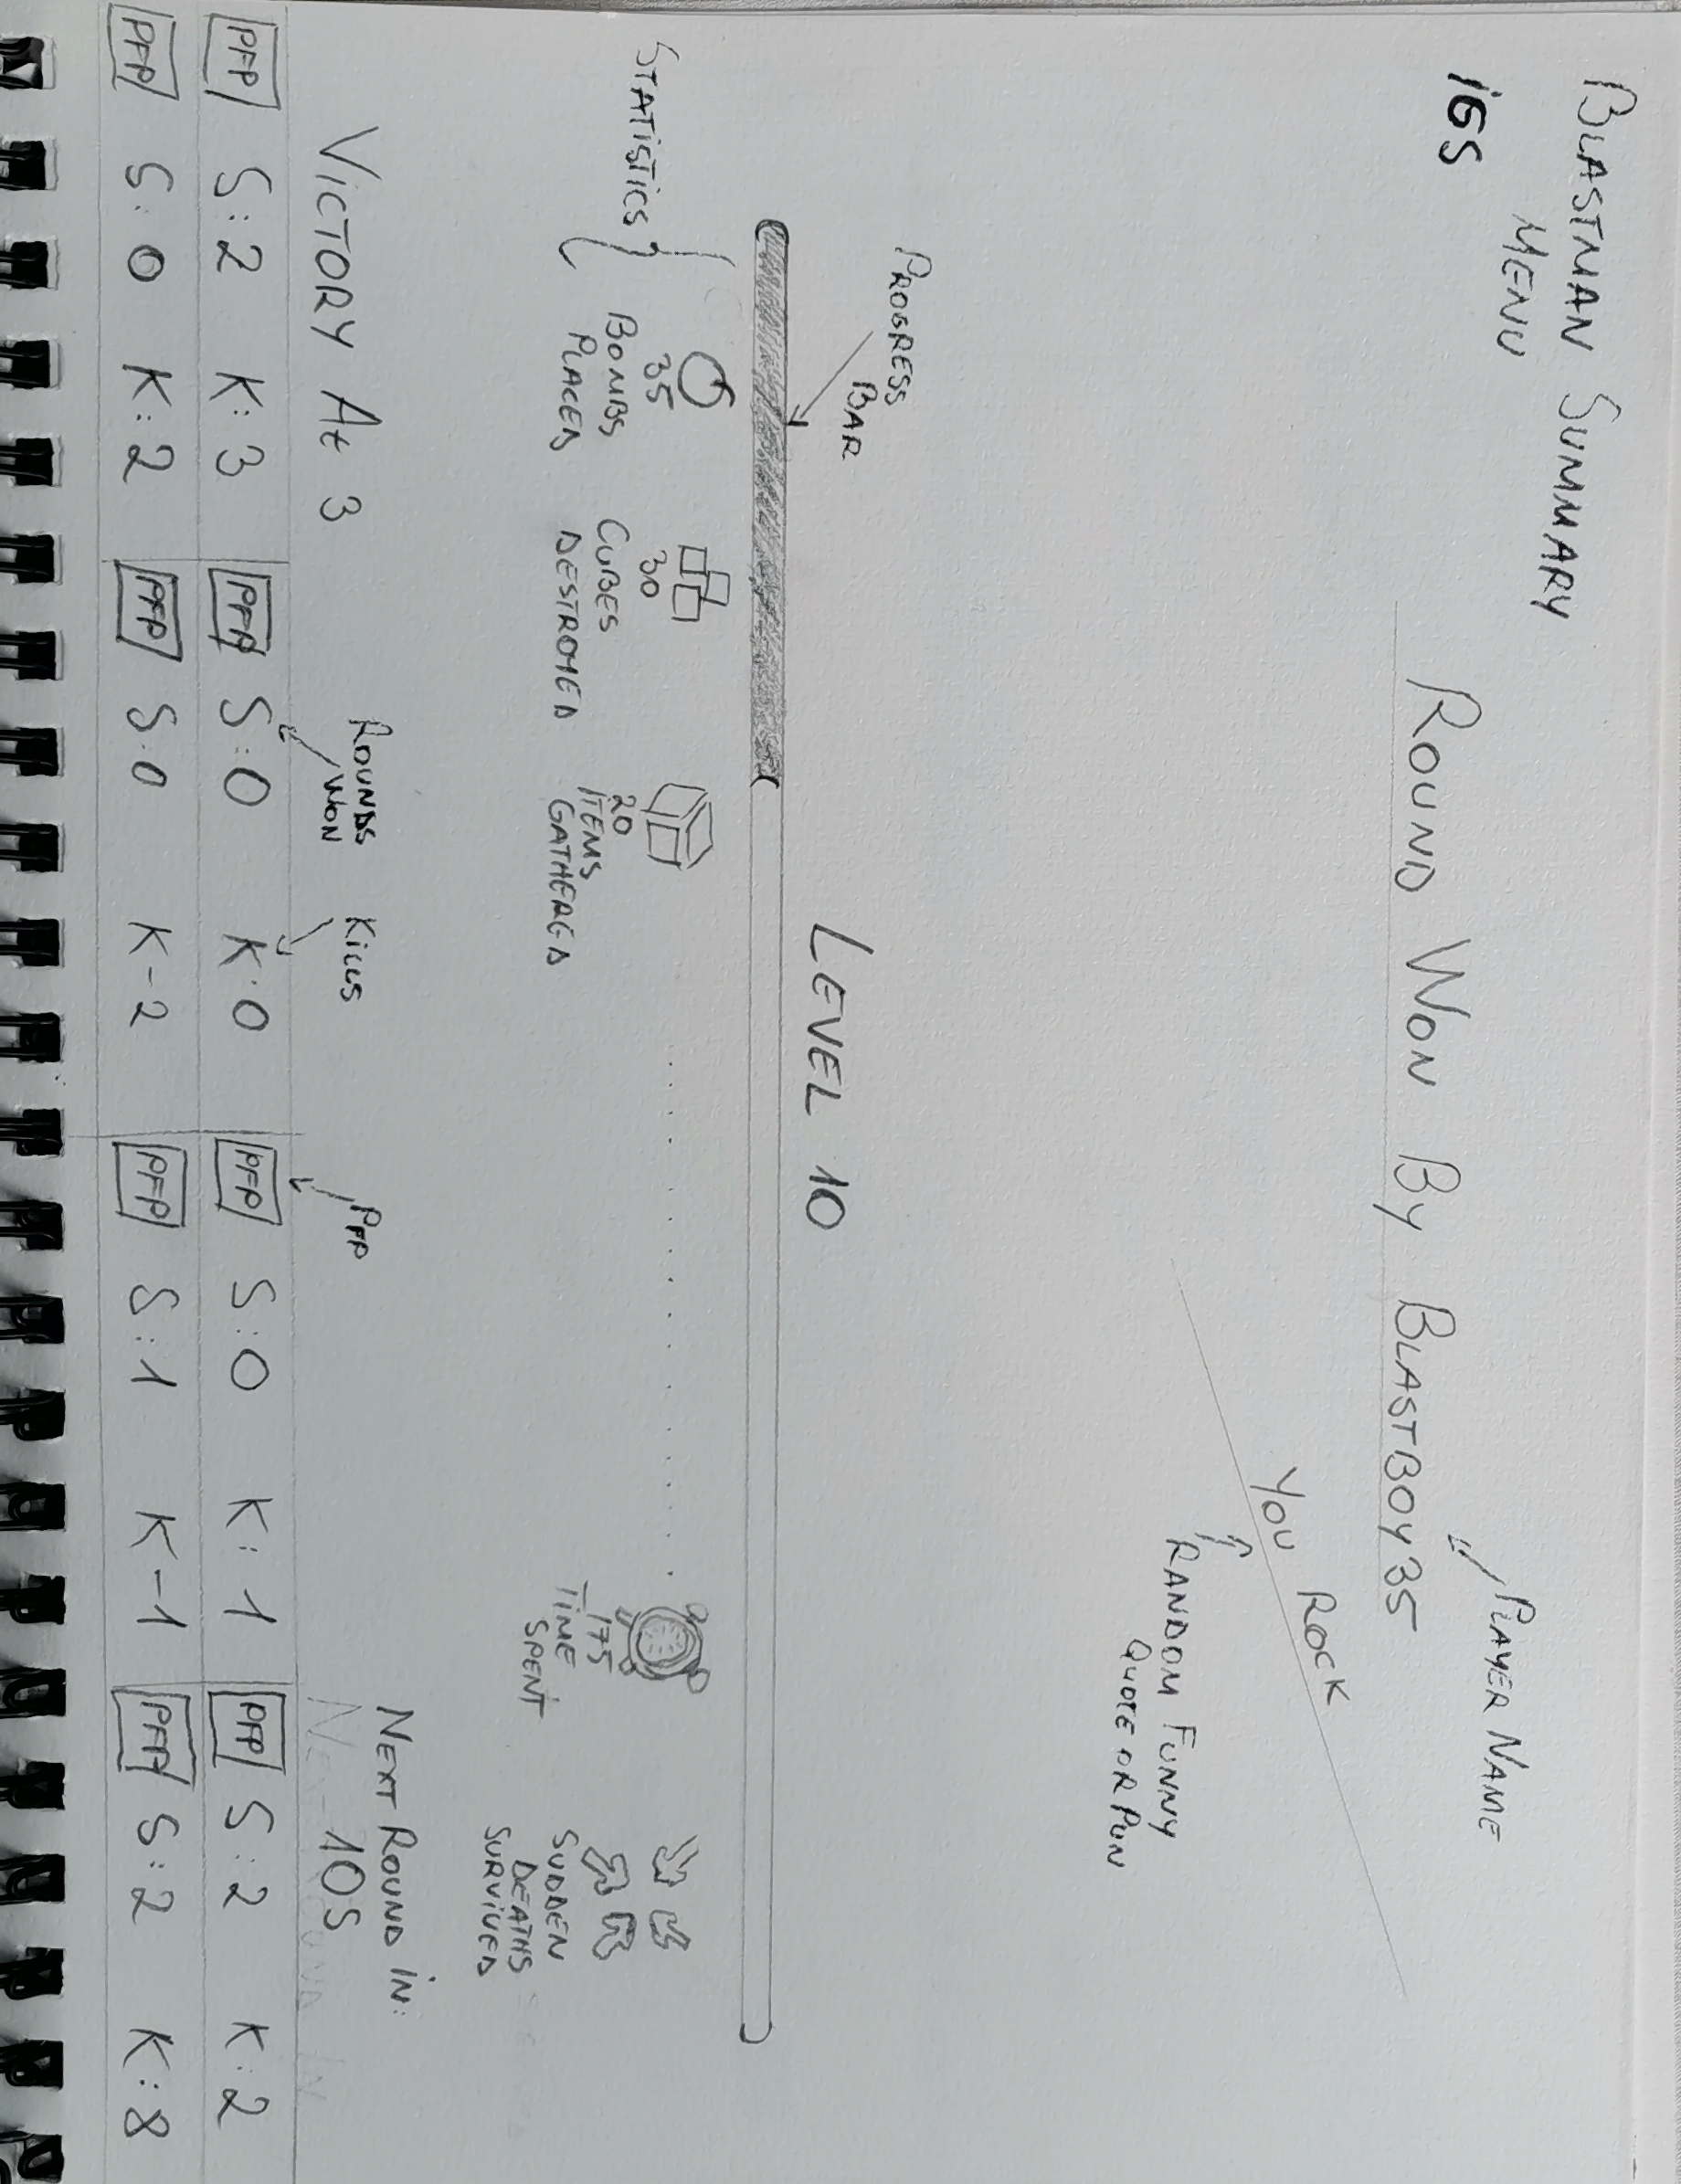 BLASTMAN SUMMARY
MENU
iGS
PLAYER NAME
ROUND WON BY BLASTBOY35
YOU ROCK
RANDOM FUNNY
QUOTE OR PUN
PROGRESS
BAR
LEVEL 10
STATiSTiCS
35
BOMBS
PLACED
30
CUBES
DESTROYED
20
iTEMS
GATHERED
175
TiME
SPENT
SUDDEN
DEATHS
SURViVED
NEXT ROUND iN:
10S
NEXT ROUND IN
ViCTORY At 3
ROUNDS
WON
KiLLS
PFP
PFP S:2 K:3 PFP S:0 K:0 PFP S:0 K:1 PFP S:2 K:2
PFP S:0 K:2 PFP S:0 K-2 PFP S:1 K-1 PFP S:2 K:8